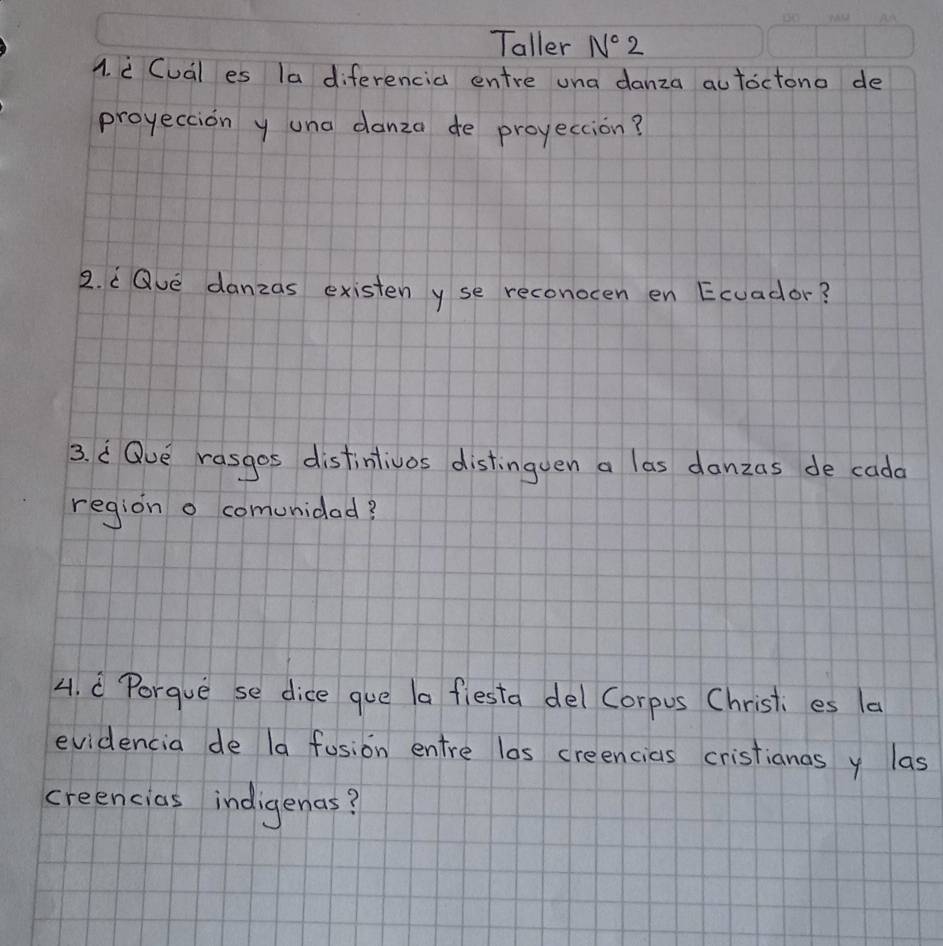 Taller N° 2
1. ¿Cuál es la diferencia entre una danza autóctona de
proyección y una danza de proyección?
2. ¿Qué danzas existen y se reconocen en Ecuador?
3. ¿Qué rasgos distintivos distinguen a las danzas de cada
región o comunidad?
4. ¿Porqué se dice que la fiesta del Corpus Christi es la
evidencia de la fusión entre las creencias cristianas y las
creencias indigenas?